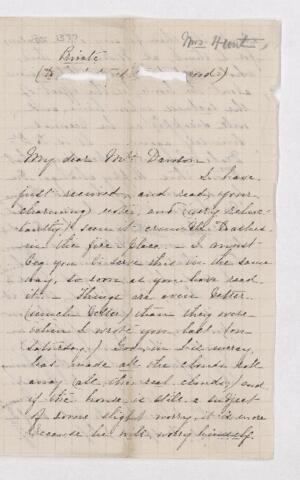 Mrs Hunt
Private
My dear Mrs Davison
I have
just received and read your
charming note, and (very reluc-
tantly) seen it crumble to ashes
in the fire place. – I must
beg you to serve this in the same
way, so soon as you have read
it. – Things are even better
(much better) than they were
when I wrote you last (on
Saturday.) God in His mercy
has made all the clouds roll
away (all the real clouds) and
if the house is still a subject
of some slight worry, it is more
because he will worry himself.